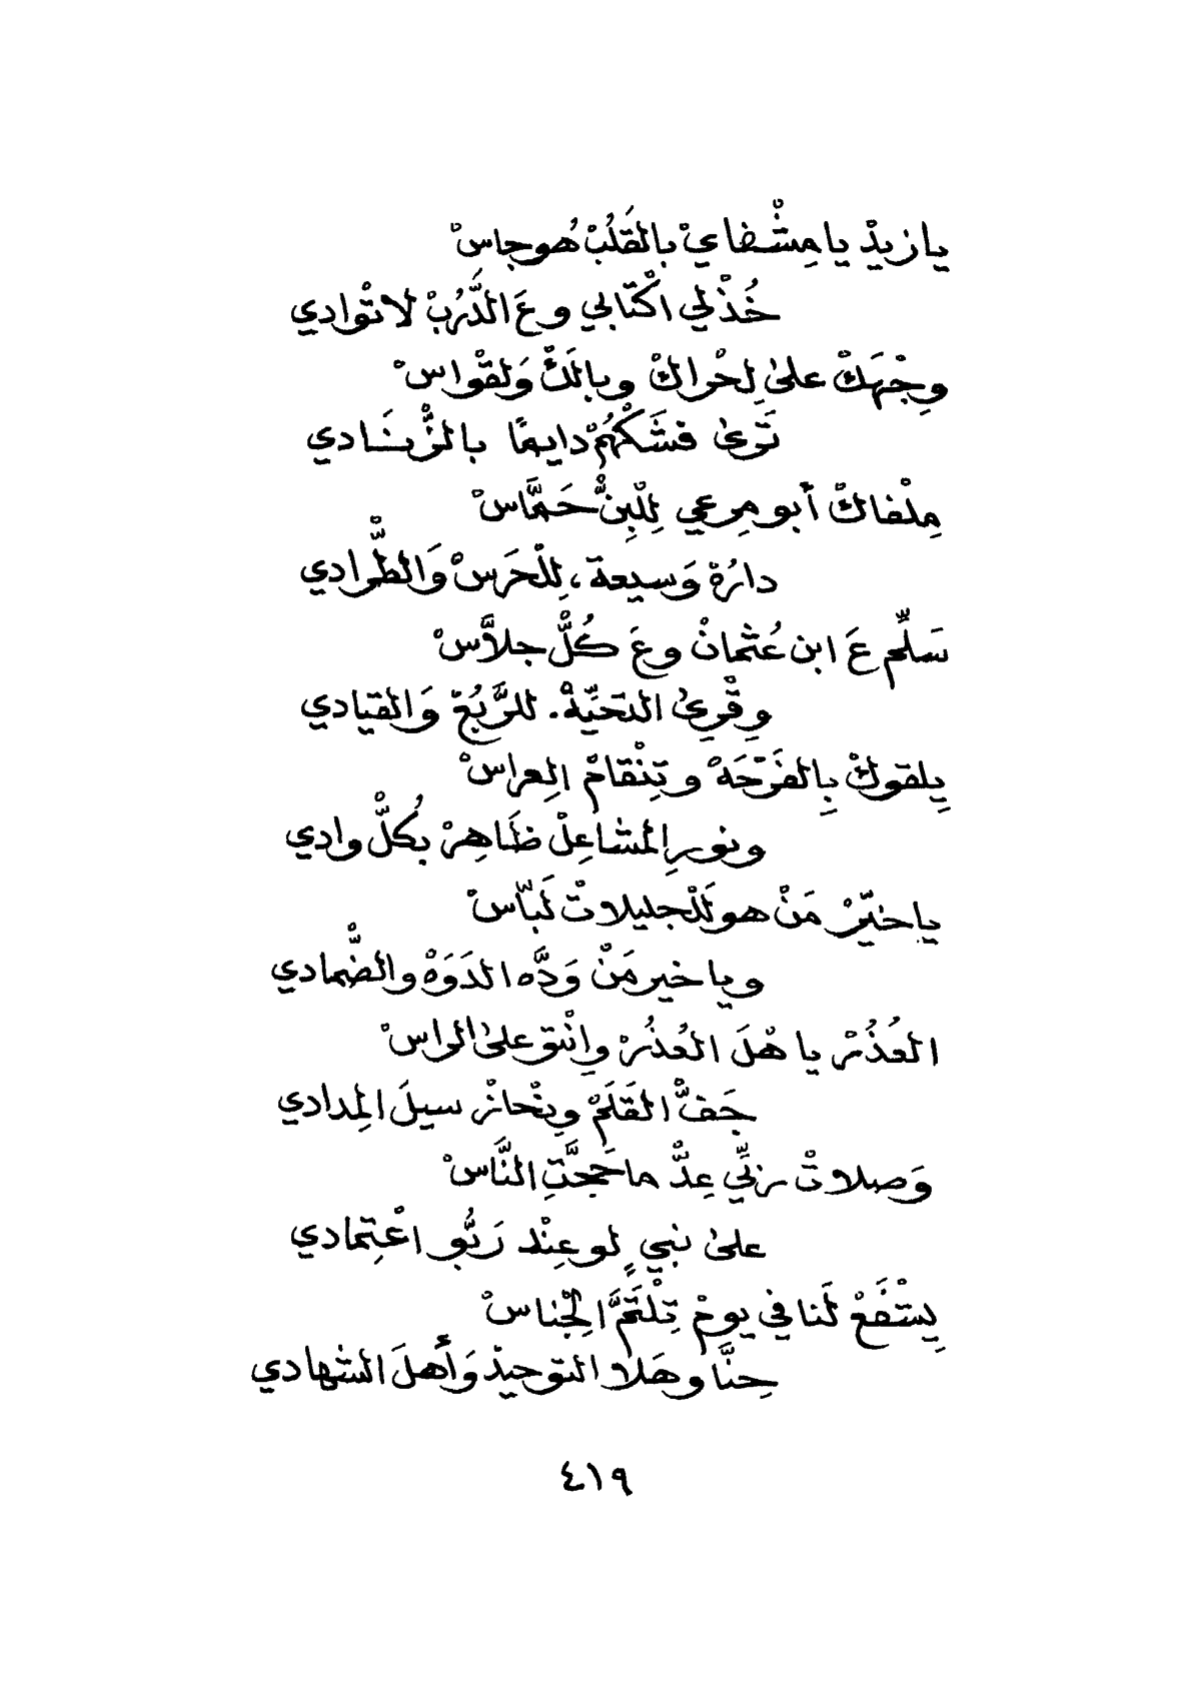 يا زيدْ يا مِشْفايْ بالقَلُبْ هُوجاسْ
خُذْلي اكْتابي وعَ الدَّرُبْ لا تْوادي
وِجْهَكْ على لِحْراكْ وبالَكْ وَلقْواسْ
تَرى فشَكْهُمْ دايمًا بالزّْنَادي
مِلْفاكْ أبو مِرعي لِلْبِنّْ حَمَّاسْ
دارُهْ وَسيعة، لِلْحَرَسْ وَالطّْرادي
سَلِّم عَ ابن عُثمانْ وعَ كُلّْ جلاَّسْ
وِقْرِئ التحَيِّهْ. للرَّبُعْ وَالقيادي
يِلقوكْ بِالفَرْحَهْ وتِنْقامْ العِراسْ
ونور المِشاعِلْ ظَاهِرْ بكُلّْ وادي
يا خيّرْ مَنْ هو لَلْجليلاتْ لَبّاسْ
ويا خير مَنْ وَدَّه الدَوَهْ والضّْمادي
العُذُرْ يا هْلَ العُذُرْ وإنْتو على الراسْ
جَفّْ القَلَمْ وِنْحازْ سيلَ المِدادي
وَصلاتْ ربِّي عِدّْ ما حَجَّتِ النَّاسْ
على نبيٍ لو عِنْد رَبُّو اعْتِمادي
يِشْفَعْ لَنا في يومْ تِلْتَمَّ الِجْناسْ
حِنَّا وهَلا التوحيدْ وَأهلَ الشهادي
٤١٩